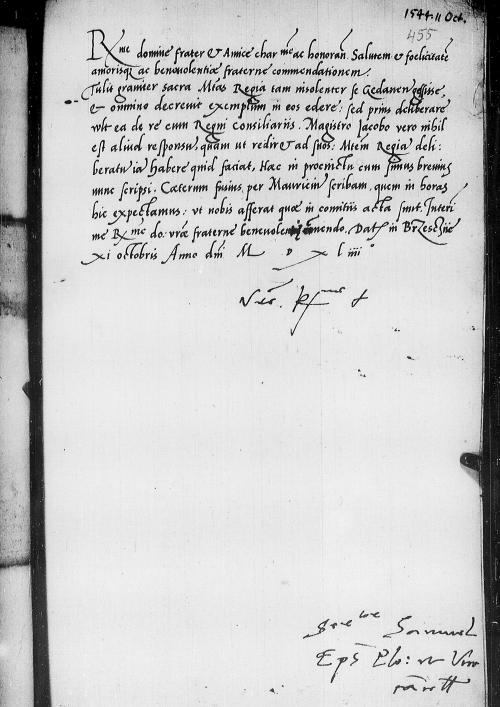 1544. 11 Oct.
455
Rme domine frater & Amice char me ac honoran. Salutem & foelicitate
amorisq ac beneuolentiæ fraterne commendationem.
Tulit grauiter sacra Mtas Regia tam insolenter se Gedanen gessisse,
& omnino decreuit exemplum in eos edere: sed prius deliberare
vlt ea de re cum Regni Consiliariis. Magistro Jacobo vero nihil
est aliud responsu, quam ut redir& ad suos: Mtem Regia deli:
beratu ia habere quid faciat, Hæc in procinctu cum simus breuius
nunc scripsi. Cæterum fusius, per Mauriciu scribam, quem in horas
hic expectamus: vt nobis afferat quæ in comitiis acta sint. Interi
me Rme do: vræ fraterne beneuolen mendo. Dat in Brzeschie
xi octobris Anno dni M D xliiii
Samuel
Eps Plo: